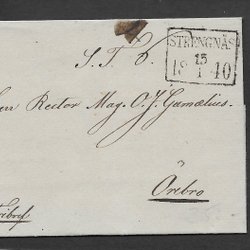 STRENGNÄS
15
18 1 40
S. T. B.
Rector Mag. O. J. Gamœlius.
å
Örebro